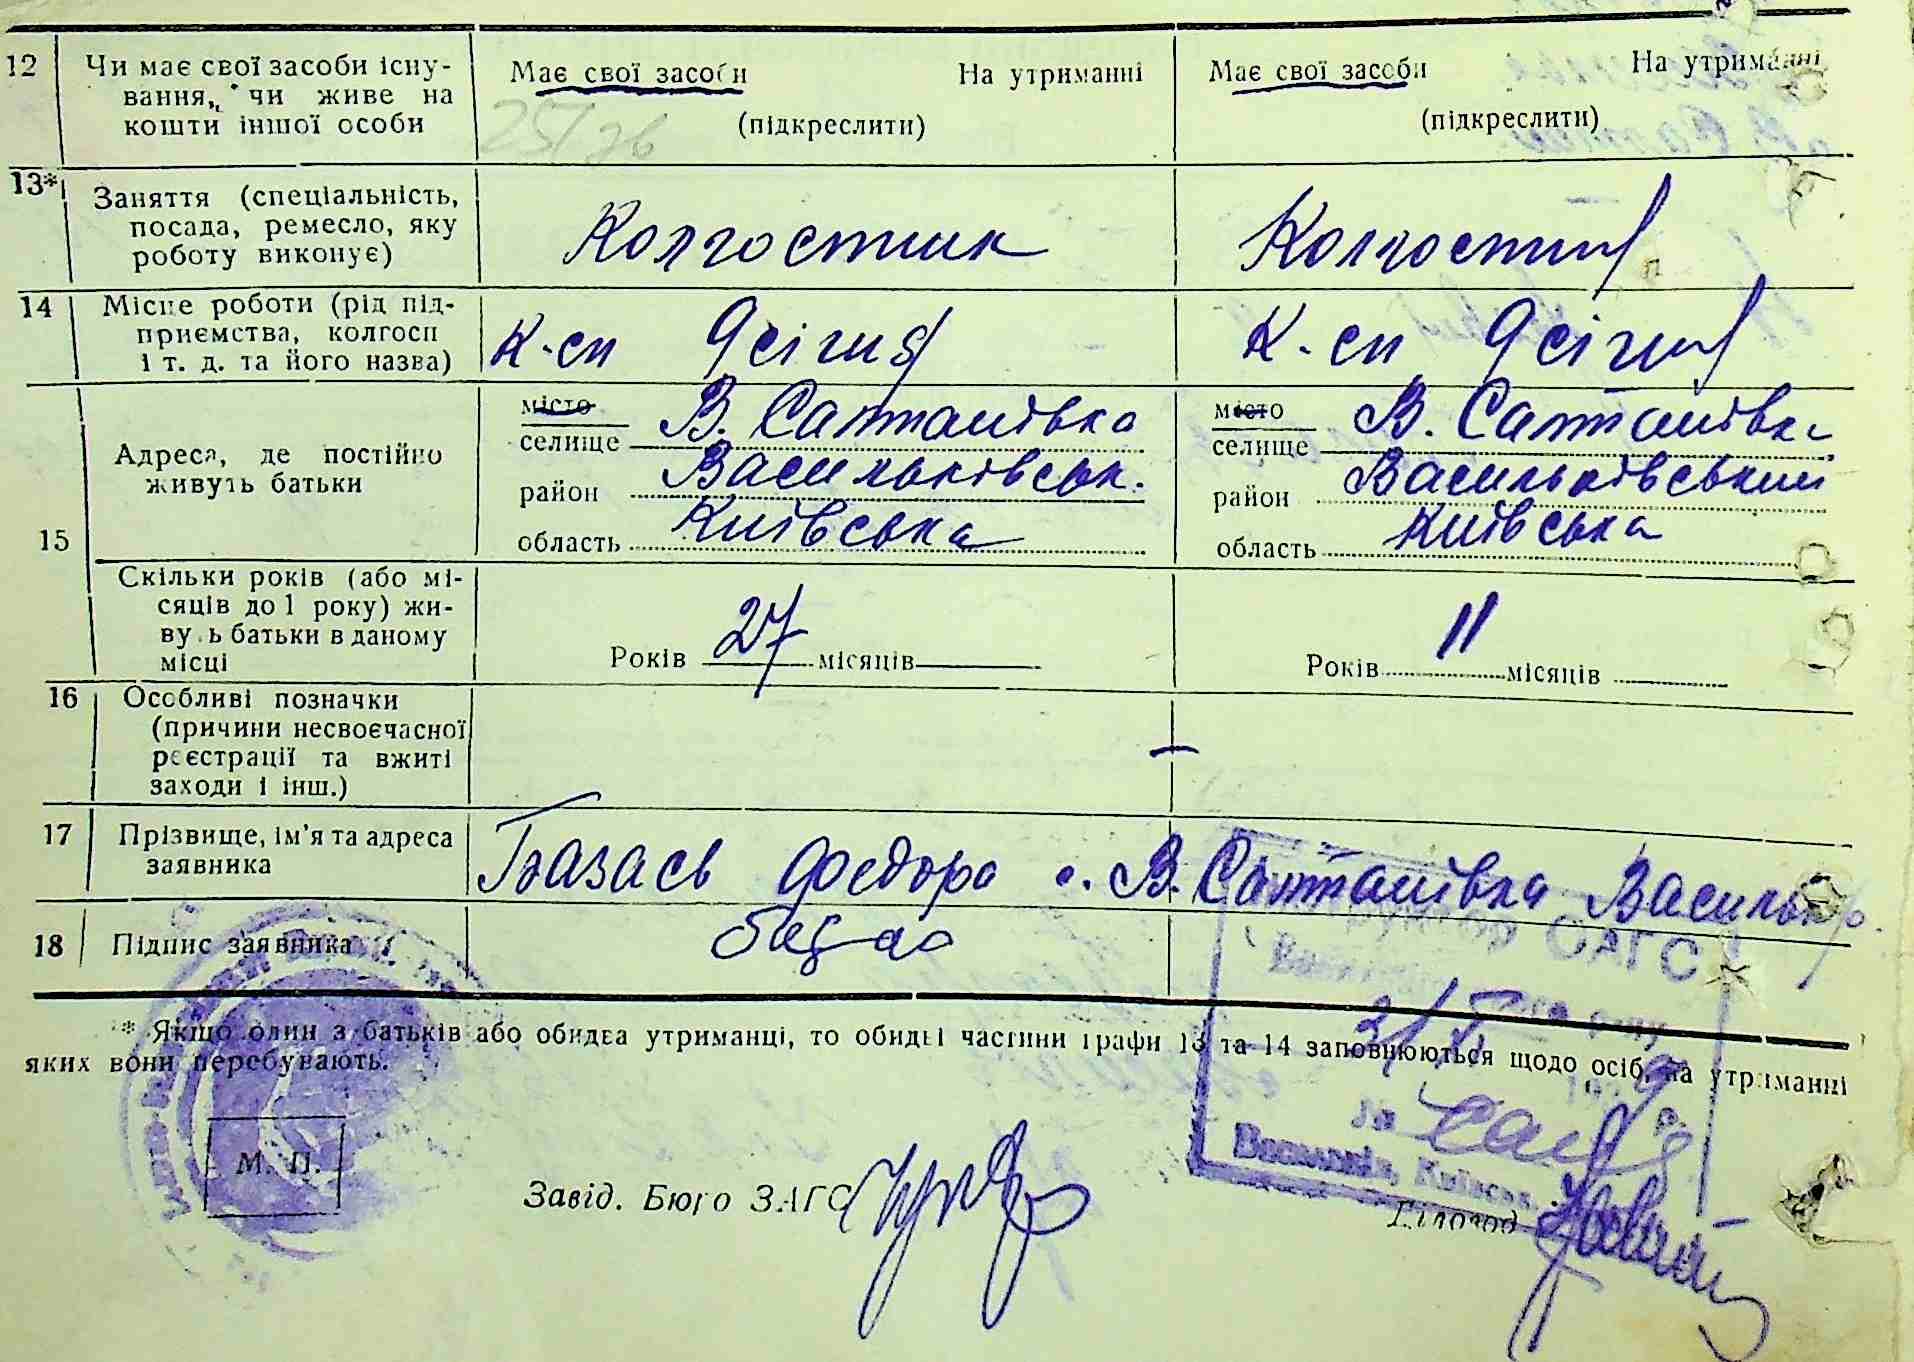 12 Чи має свої засоби існу-
вання, чи живе на
кошти іншої особи
Має свої засоби На утриманні
(підкреслити)
Має свої засоби На утриманні
(підкреслити)
13* Заняття (спеціальність,
посада, ремесло, яку
роботу виконує)
Колгоспник
Колгоспниц
14 Місце роботи (рід під-
приємства, колгосп
і т. д. та його назва)
К-сп
К-сп
15 Адреса, де постійно
живуть батьки
місто
селище В. Салтанівка
район Васильківськ.
область Київська
місто
селище В. Салтанівка
район Васильківський
область Київська
Скільки років (або мі-
сяців до 1 року) жи-
вуть батьки в даному
місці
Років 27 місяців
Років 11 місяців
16 Особливі позначки
(причини несвоєчасної
реєстрації та вжиті
заходи і інш.)
–
17 Прізвище, ім'я та адреса
заявника
Федора с. В. Салтанівка Васильк
18 Підпис заявника
* Якщо один з батьків або обидва утриманці, то обидві частини графи 13 та 14 заповнюються щодо осіб, на утриманні
яких вони перебувають.
ЗАГС
М. П.
Завід. Бюро ЗАГС
Васильків, Київськ.
Діловод